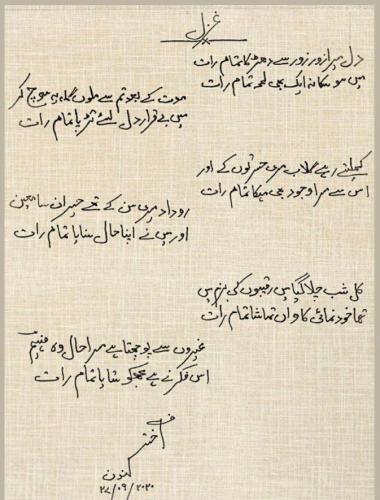 غزل
دل میرا زور زور سے دھڑکا تمام رات
میں سو سکا نہ ایک بھی لمحہ تمام رات
موت کے بعد تم سے ملوں گا یہ سوچ کر
میں بے قرار دل لئے تڑپا تمام رات
کھلتے رہے گلاب مری حسرتوں کے اور
اس سے مرا وجود بھی مہکا تمام رات
روداد میری سن کے تھے حیران سامعین
اور میں نے اپنا حال سنایا تمام رات
کل شب چلا گیا میں رقیبوں کی بزم میں
تھا خود نمائی کا واں تماشا تمام رات
غیروں سے پوچھتا ہے مرا حال وہ
اس فکر نے ہے مجھکو ستایا تمام رات
اختر
۲۷/۰۹/۲۰۲۰